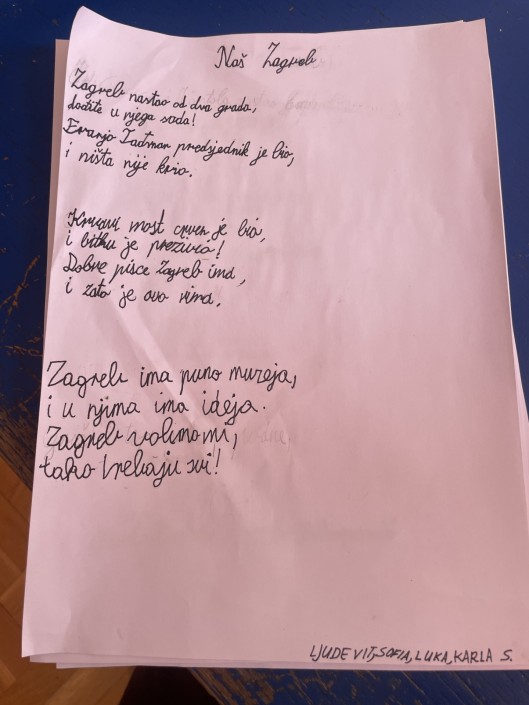 Naš Zagreb
Zagreb nastao od dva grada,
dođite u njega sada!
Franjo Tuđman predsjednik je bio,
i ništa nije krio.
Krvavi most crven je bio,
i bitku je preživio!
Dobre pisce Zagreb ima,
i zato je ovo rima.
Zagreb ima puno muzeja,
i u njima ima ideja.
Zagreb volimo mi,
tako trebaju svi!
LJUDEVIT, SOFIA, LUKA, KARLA S.